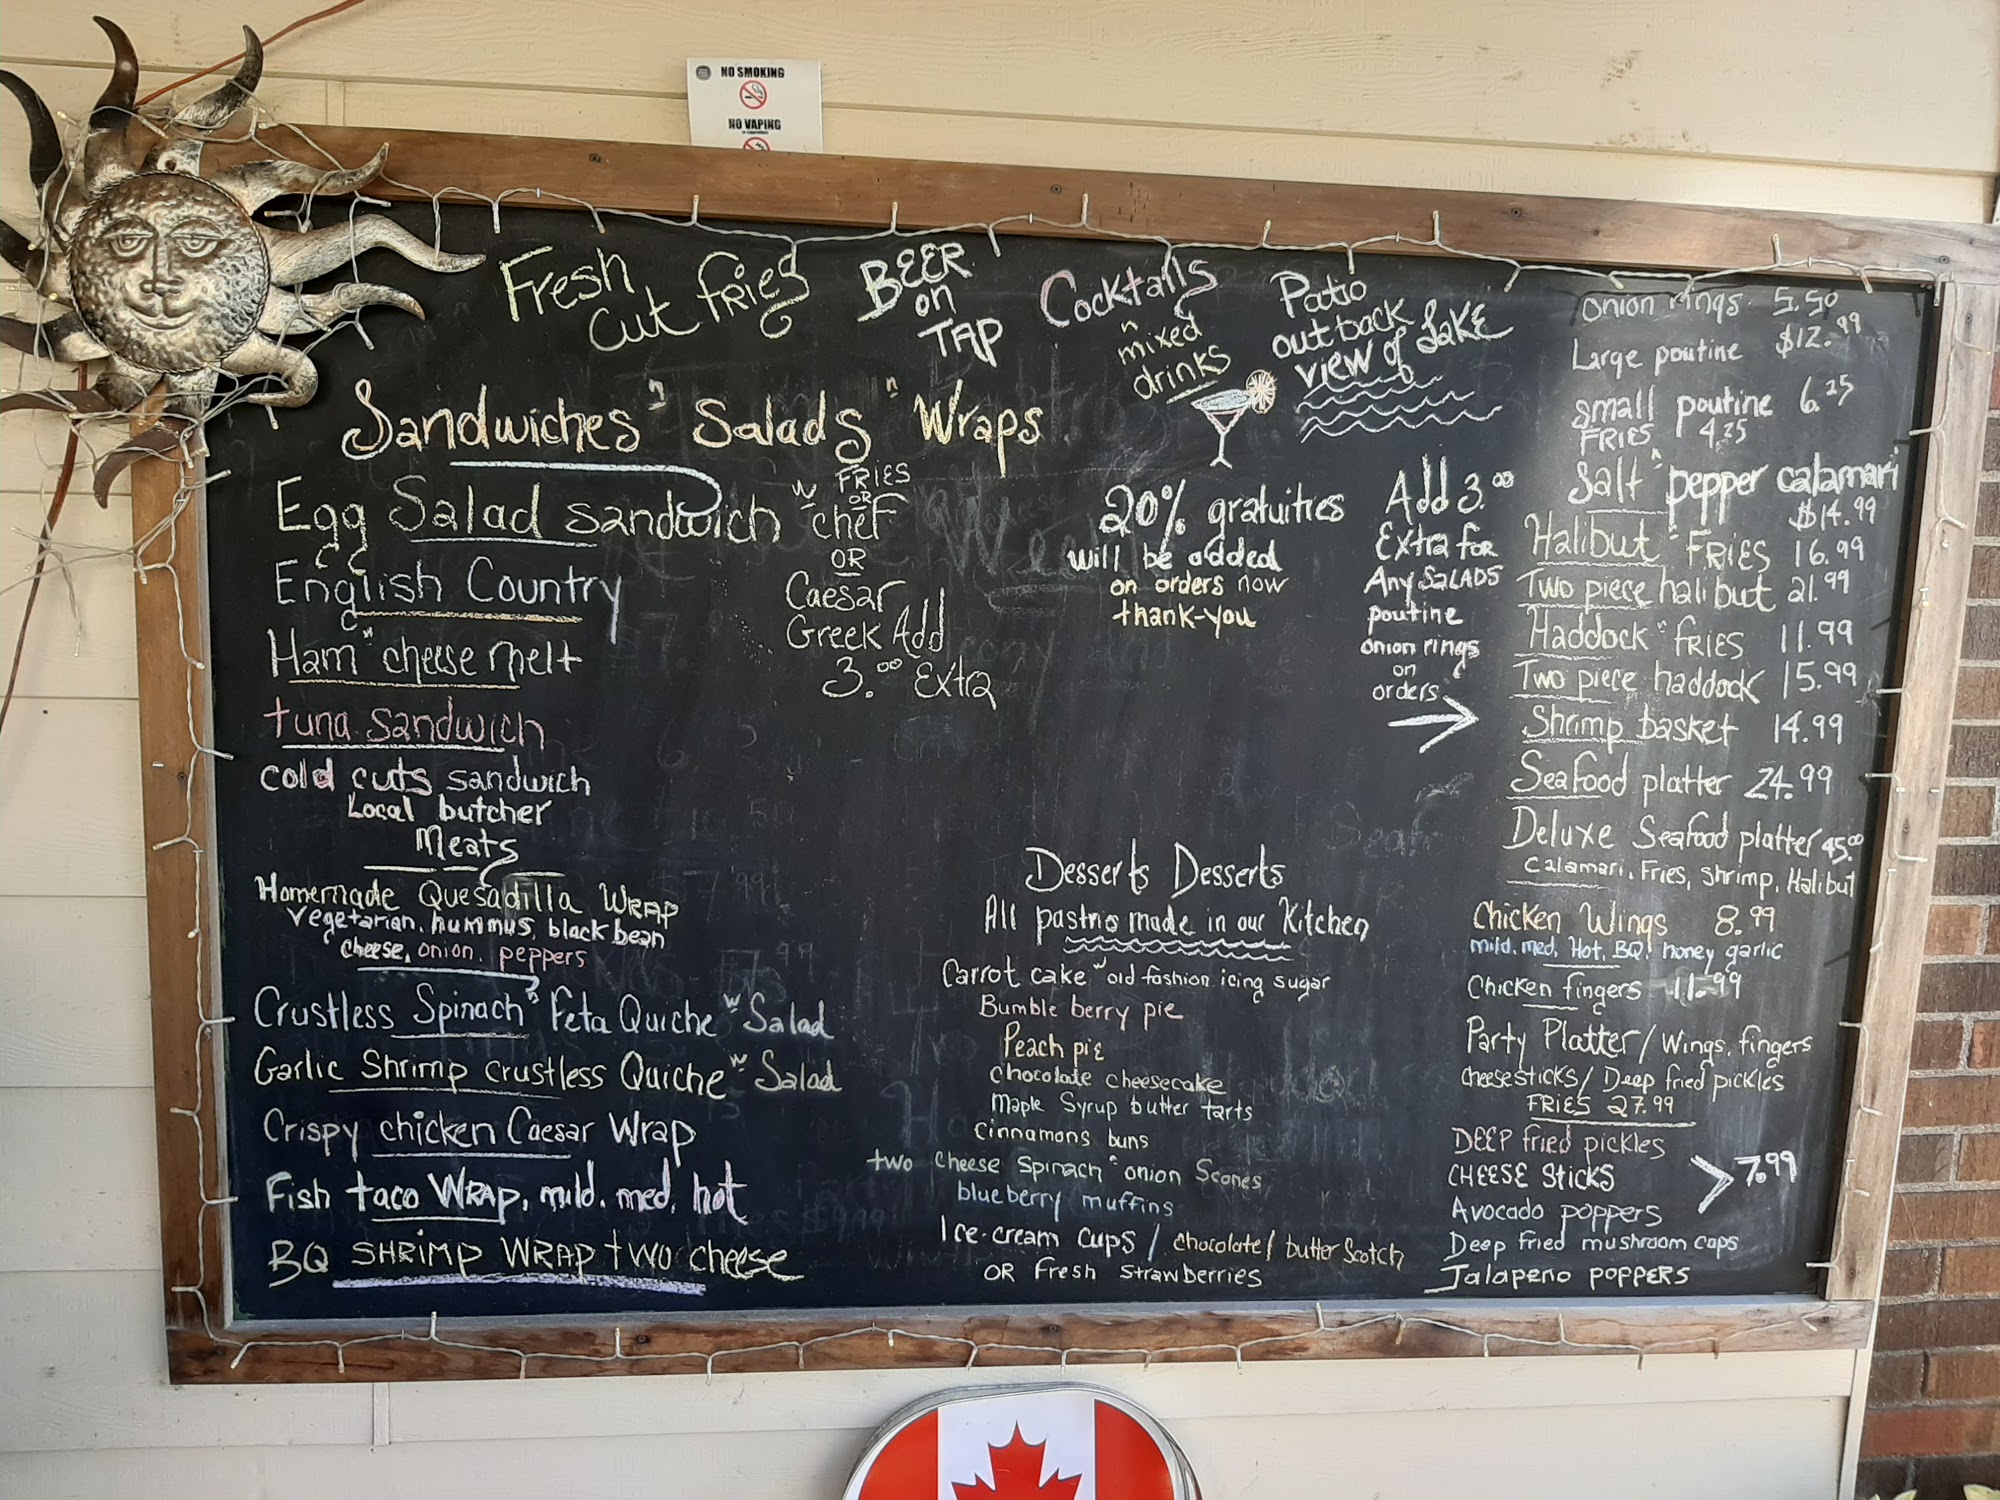 NO SMOKING
NO VAPING
Fresh
Cut fries
BEER
on
TAP
Cocktails
n
mixed
drinks
Patio
out back
view of Lake
Sandwiches " Salads " Wraps
Egg Salad sandwich w FRIES
OR
chef
OR
Caesar
Greek Add
3.00 Extra
English Country
Ham n cheese melt
tuna sandwich
cold cuts sandwich
Local butcher
Meats
Homemade Quesadilla WRAP
vegetarian, hummus, black bean
cheese, onion, peppers
Crustless Spinach n Feta Quiche w Salad
Garlic Shrimp crustless Quiche w Salad
Crispy chicken Caesar Wrap
Fish taco WRAP, mild. med, hot
BQ SHRIMP WRAP two cheese
20% gratuities
will be added
on orders now
thank-you
Add 3.00
Extra for
Any SALADS
poutine
onion rings
on
orders
Desserts Desserts
All pastrio made in our Kitchen
Carrot cake w old fashion icing sugar
Bumble berry pie
Peach pie
chocolate cheesecake
maple Syrup butter tarts
cinnamons buns
two cheese spinach n onion Scones
blueberry muffins
Ice-cream cups / chocolate / butter Scotch
OR fresh strawberries
onion rings 5.50
Large poutine $12.99
small poutine 6.25
FRIES 4.25
Salt n pepper calamari
$14.99
Halibut n FRIES 16.99
Two piece halibut 21.99
Haddock n fries 11.99
Two piece haddock 15.99
Shrimp basket 14.99
Seafood platter 24.99
Deluxe Seafood platter 45.00
Calamari, Fries, shrimp, Halibut
Chicken Wings 8.99
mild, med, Hot, BQ, honey garlic
Chicken fingers 11.99
Party Platter / Wings, fingers
cheesesticks / Deep fried pickles
FRIES 27.99
DEEP fried pickles
CHEESE Sticks 7.99
Avocado poppers
Deep fried mushroom caps
Jalapeno poppers